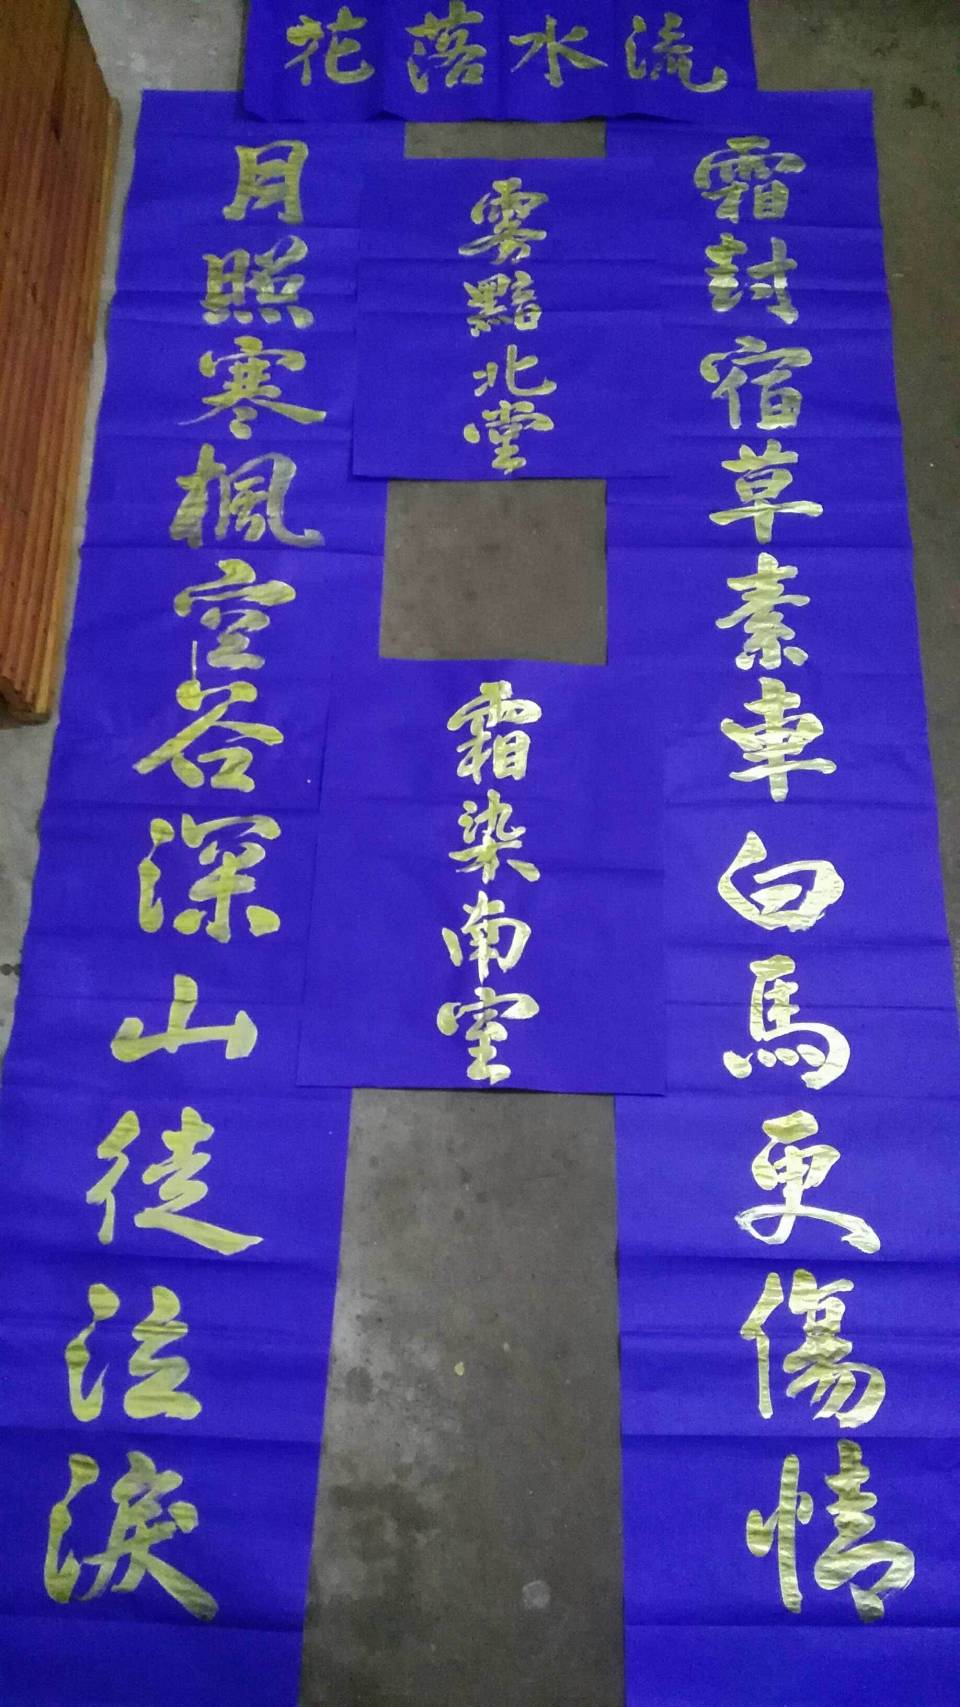 花落水流
霜封宿草素車白馬更傷情
月照寒楓空谷深山徒泣淚
雾黯北堂
霜染南室